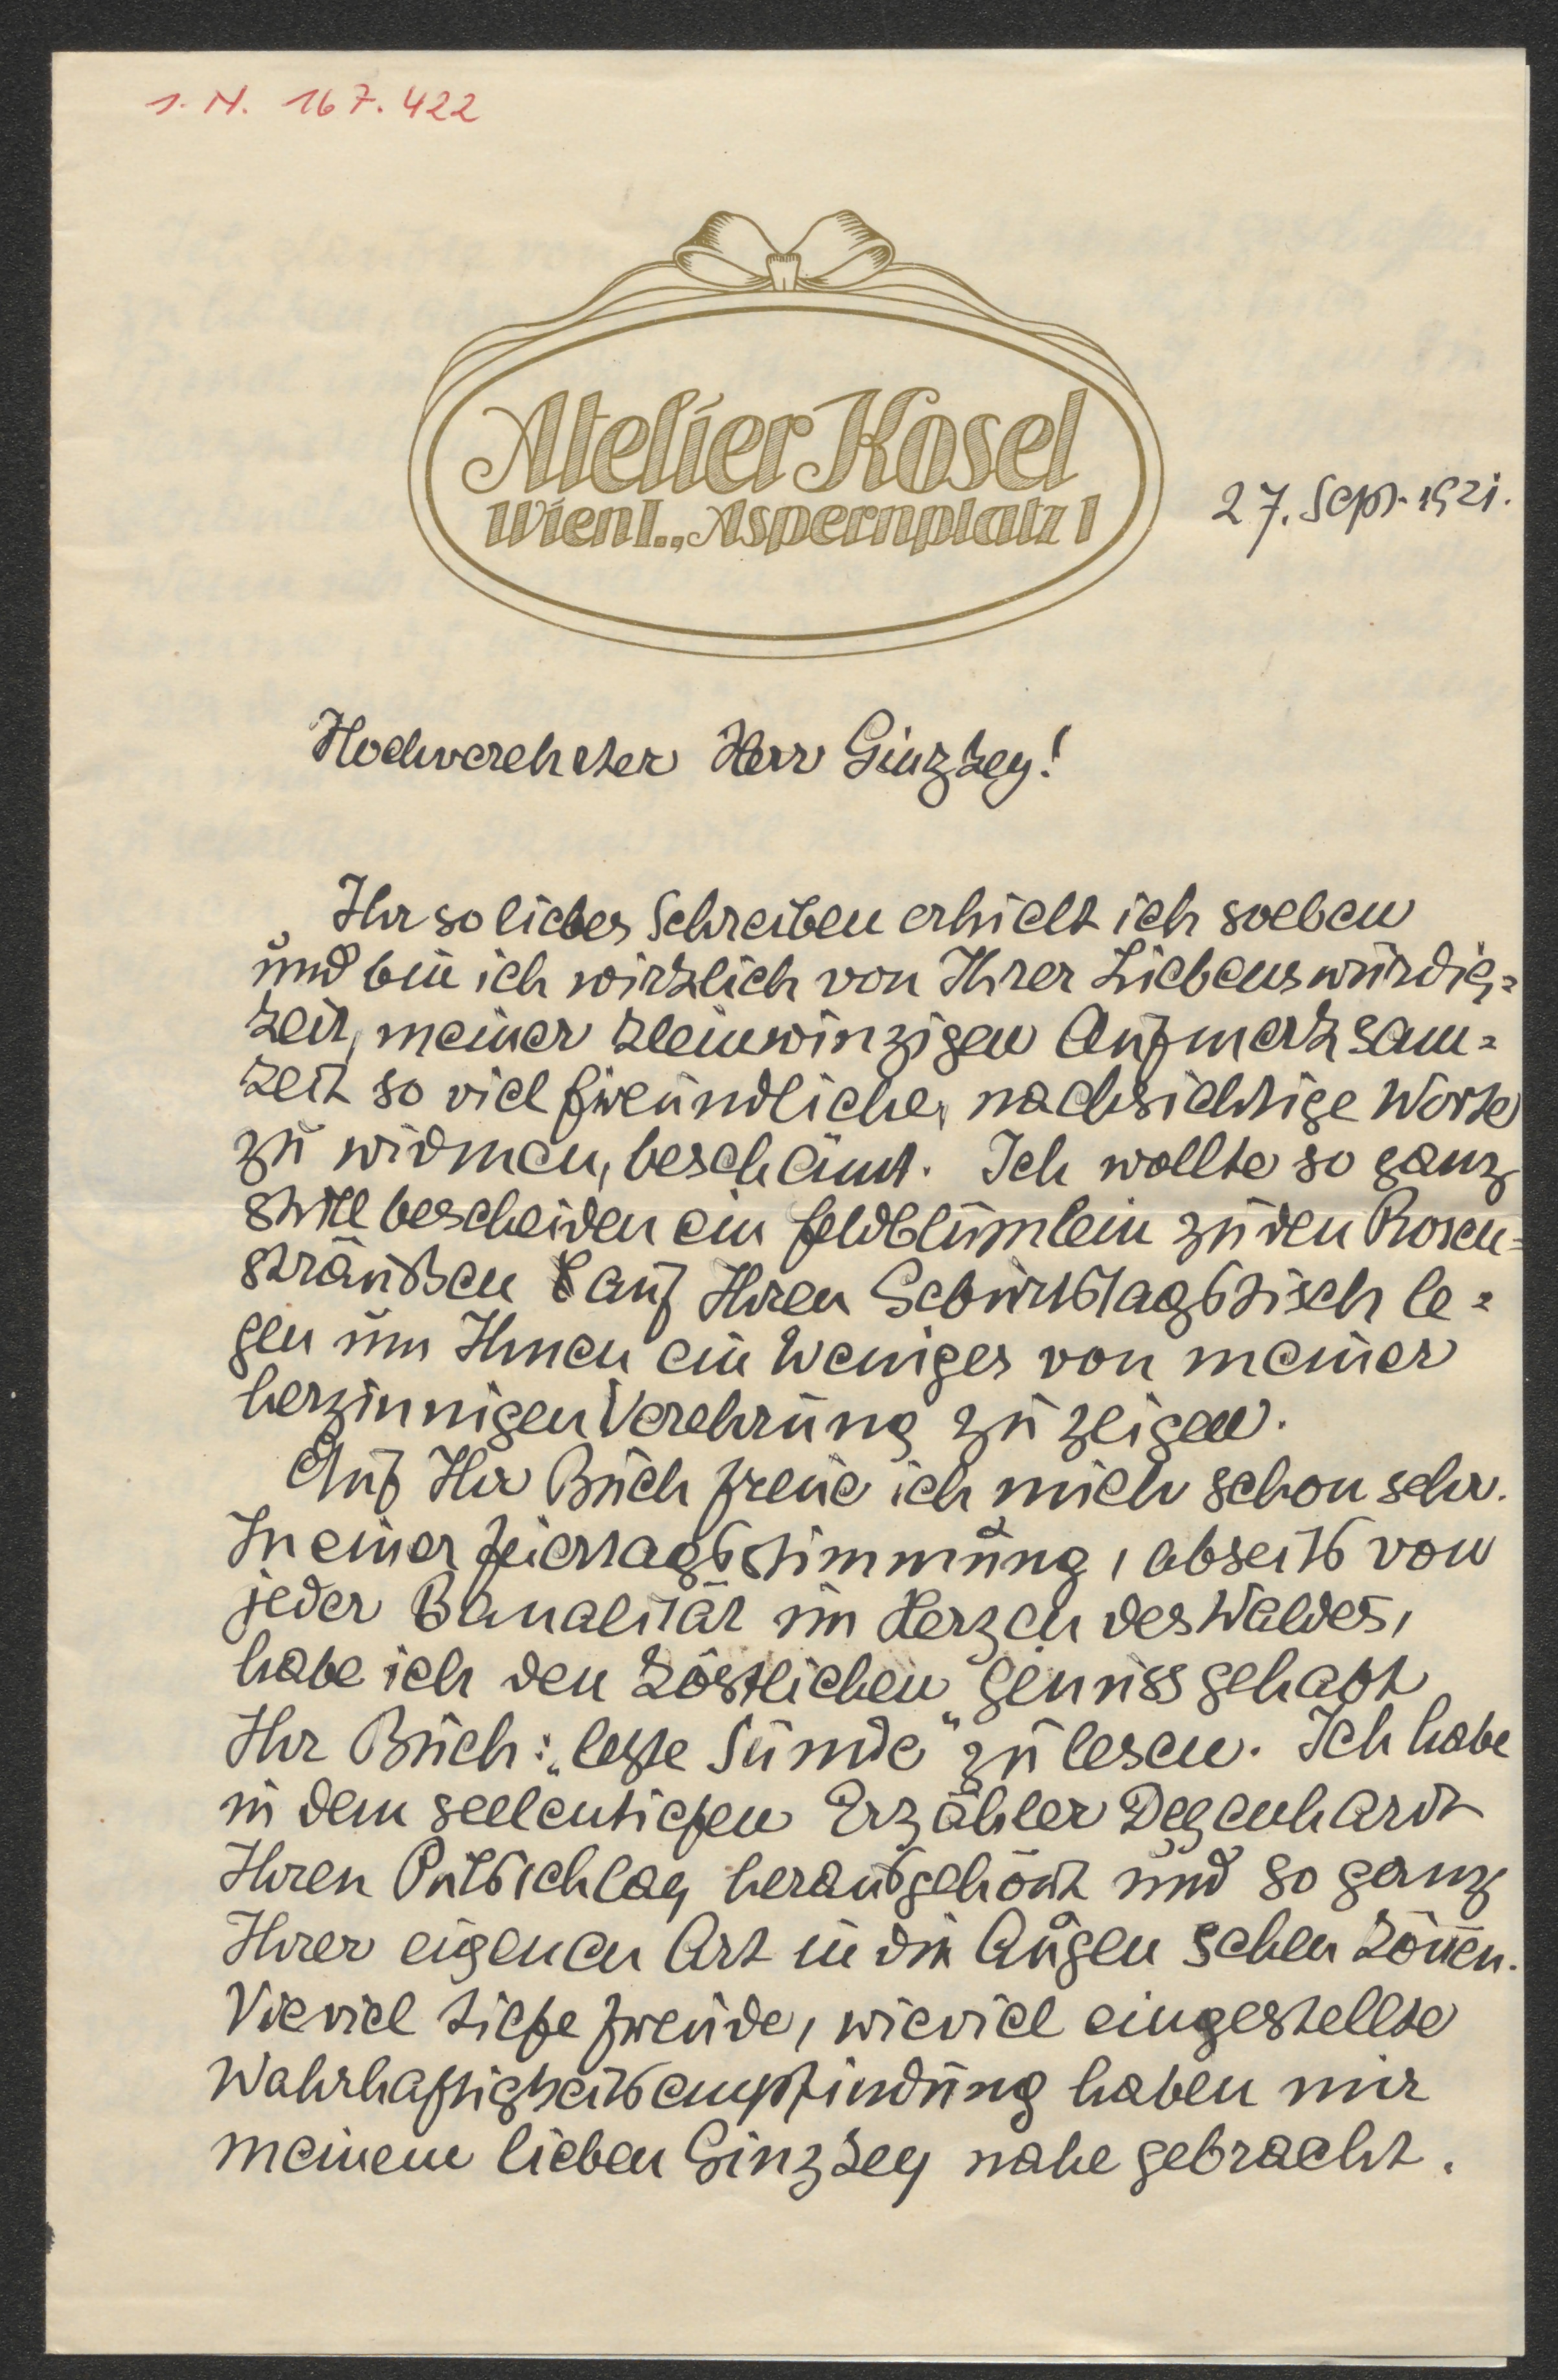 I. N. 167.422
Atelier Kosel
Wien I., Aspernplatz 1
27. Sept. 1921.
Hochverehrter Herr Ginzkey!
Ihr so liebes Schreiben erhielt ich soeben
und bin ich wirklich von Ihrer Liebenswürdig=
keit, meiner kleinwinzigen Aufmerksam=
keit so viel freundliche, nachsichtige Worte
zu widmen, beschämt. Ich wollte so ganz
still bescheiden ein Feldblümlein zu den Rosen=
sträußen auf Ihren Geburtstagstisch le=
gen um Ihnen ein Weniges von meiner
herzinnigen Verehrung zu zeigen.
Auf Ihr Buch freue ich mich schon sehr.
In einer Feiertagsstimmung, abseits von
jeder Banalität im Herzen des Waldes,
habe ich den köstlichen Genuss gehabt
Ihr Buch: „letzte Sünde" zu lesen. Ich habe
in dem seelentiefen Erzähler Degenhardt
Ihren Pulsschlag herausgehört und so ganz
Ihrer eigenen Art in die Augen sehen kön̄en.
Wieviel tiefe Freude, wieviel eingestellte
Wahrhaftigkeitsempfindung haben mir
meinem lieben Ginzkey nahe gebracht.